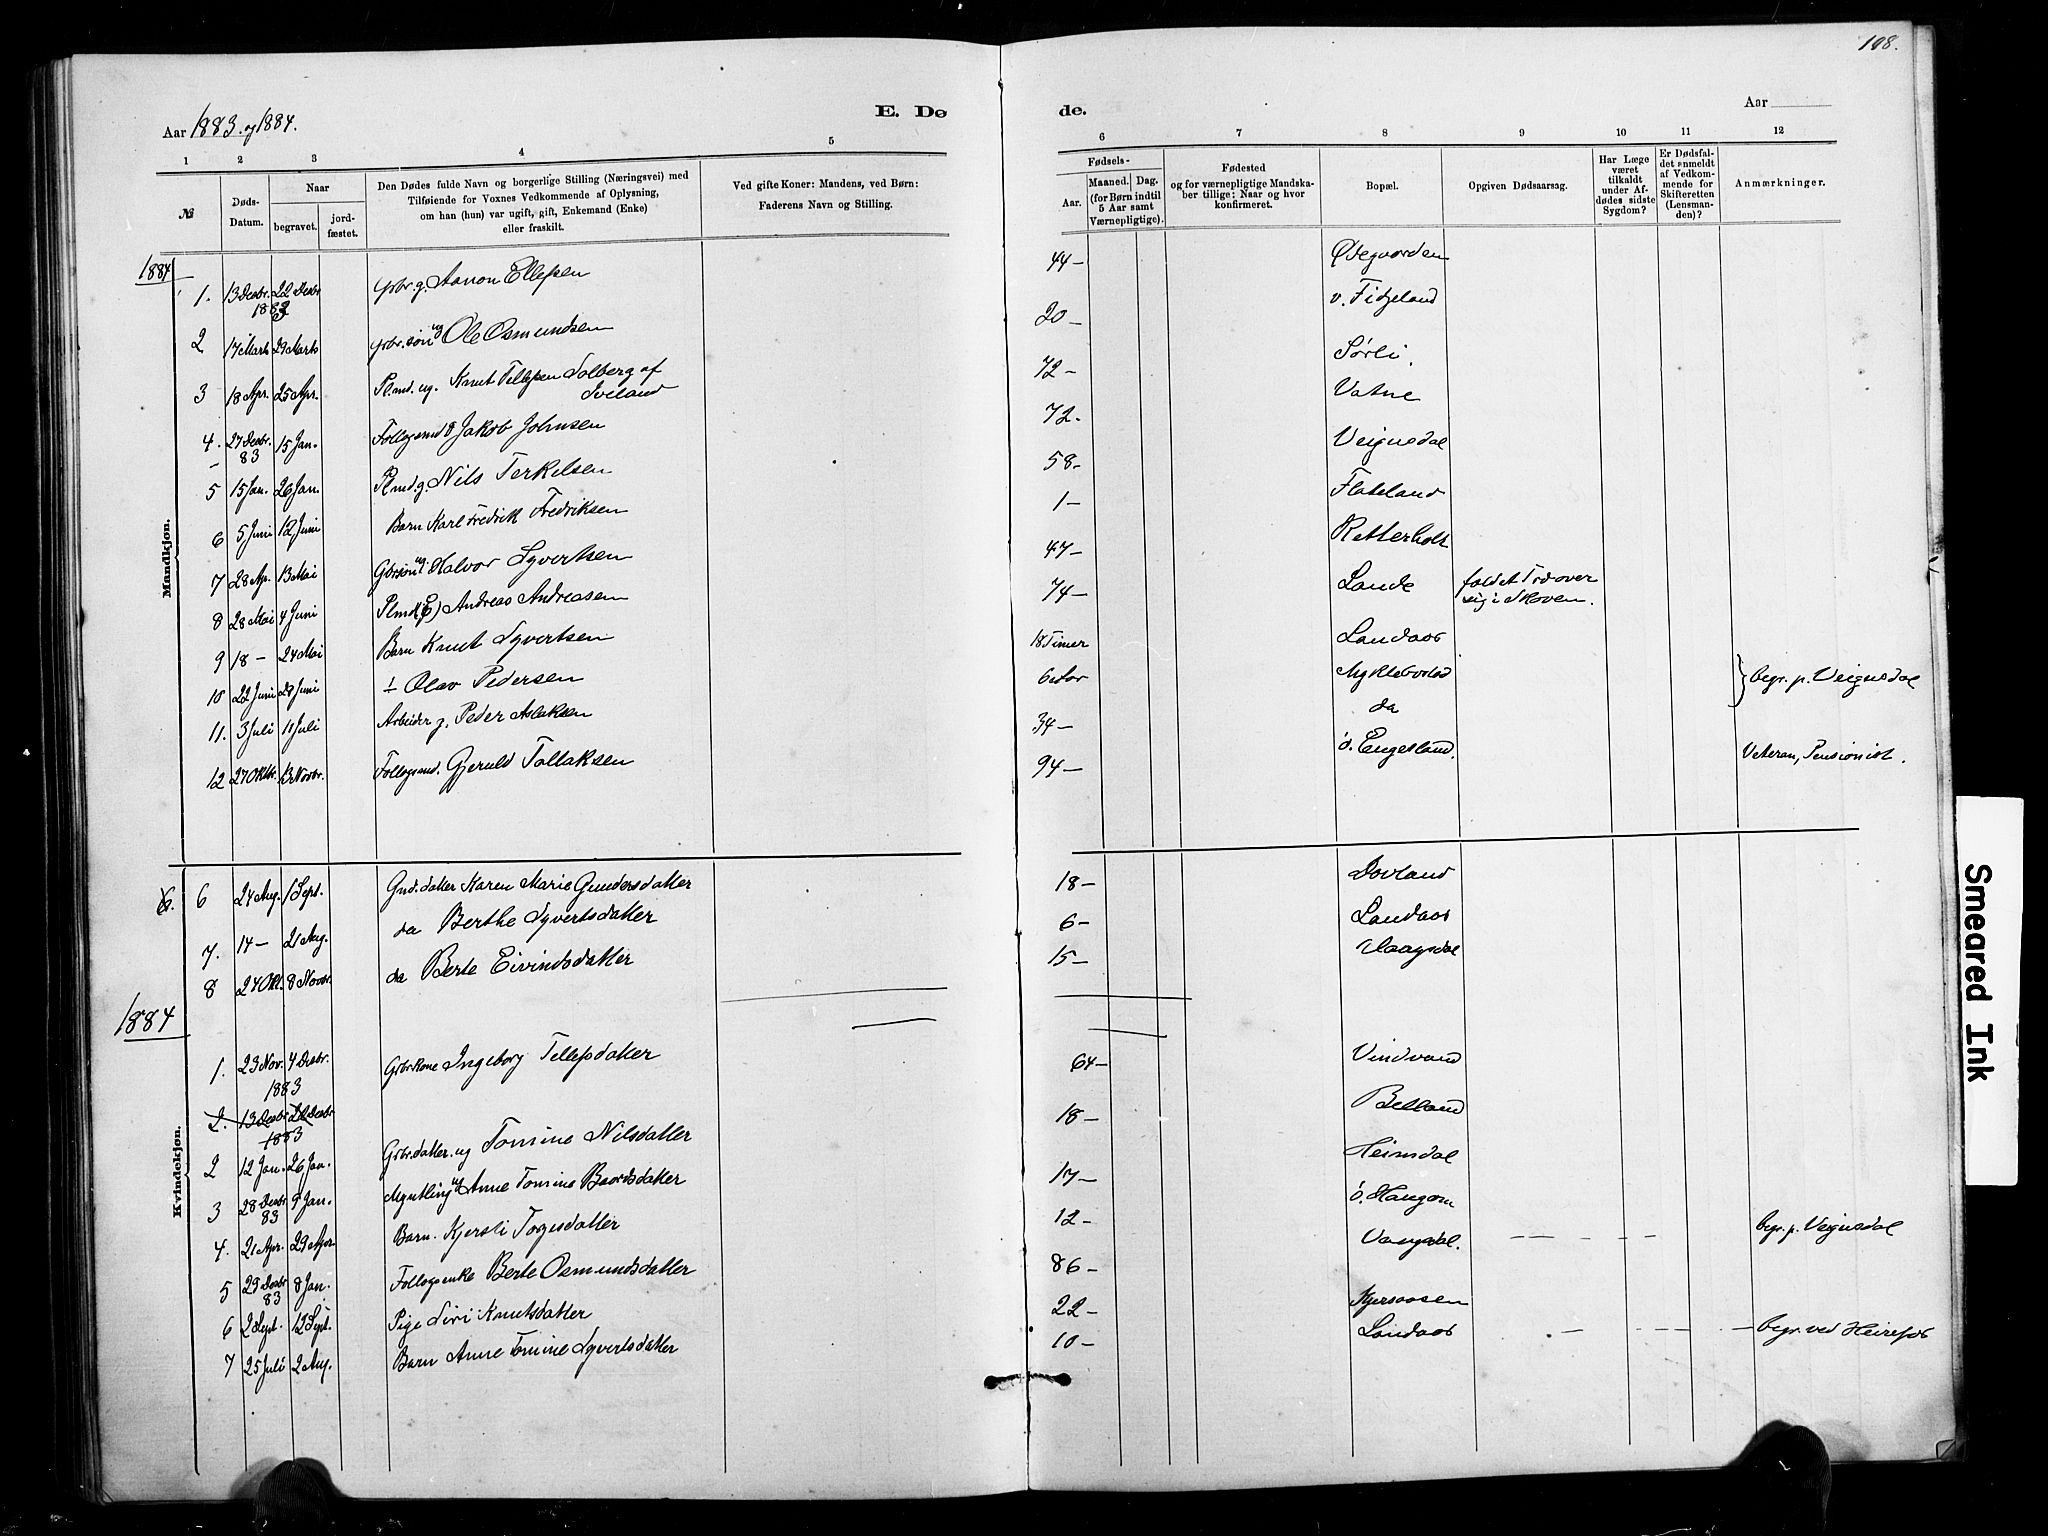 108.
Aar 1883 og 1884.
E. Dø
de.
Aar
1 2 3 4 5
6 7 8 9 10 11 12
№
Døds-Datum.
Naar
begravet.
jord-fæstet.
Den Dødes fulde Navn og borgerlige Stilling (Næringsvei) med
Tilføiende for Voxnes Vedkommende af Oplysning,
om han (hun) var ugift, gift, Enkemand (Enke)
eller fraskilt.
Ved gifte Koner: Mandens, ved Børn:
Faderens Navn og Stilling.
Fødsels-
Aar.
Maaned. Dag.
(for Børn indtil
5 Aar samt
Værnepligtige).
Fødested
og for værnepligtige Mandska-
ber tillige: Naar og hvor
konfirmeret.
Bopæl.
Opgiven Dødsaarsag.
Har Læge
været
tilkaldt
under Af-
dødes sidste
Sygdom?
Er Dødsfal-
det anmeldt
af Vedkom-
mende for
Skifteretten
(Lensman-
den)?
Anmærkninger.
Mandkjøn.
1884
1. 13 Decbr. 22 Decbr 1883 Grbr. g. Aanon Ellefsen 44 – Ødegaarden
2 17 Marts 29 Marts Grbr.søn ug Ole Osmundsen 20 – v. Fidjeland
3 18 Apr. 25 Apr. Plmd. ug. Knut Tellefsen Solberg af Iveland 72 – Sørli.
4. 27 Decbr. 83 15 Jan. Follogsmd Jakob Johnsen 72. Vatne
5 15 Jan. 26 Jan. Plmd. g. Nils Terkelsen 58 – Veignsdal
6 5 Juni 12 Juni Barn Karl Fredrik Fredriksen 1 – Flateland
7 28 Ap. 13 Mai Gbrsøn ug Halvor Syvertsen 47 – Retterholt
8 28 Mai 4 Juni Plmd (E) Andreas Andreasen 74 – Lande faldet Træ over sig i Skoven.
9 18 – 24 Mai Barn Knut Syvertsen 18 Timer Landaas
10 22 Juni 28 Juni – Olav Pedersen 6 Aar Myklebostad } begr. p. Veignsdal
11. 3 Juli 11 Juli Arbeider g. Peder Aslaksen 34 – da
12 27 Oktbr. 13 Novbr. Follogsmd. Gjeruld Tollaksen 94 – ø. Engesland. Veteran, Pensionist.
6. 6 24 Aug. 1 Sept. Gmd. datter Karen Marie Gundersdatter 18 – Dovland
7. 14 – 21 Aug. da Berthe Syvertsdatter 6 – Landaas
8 24 Okt. 8 Novbr. da Berte Eivindsdatter 15 – Vaagsdal
1884
Kvindekjøn.
1. 23 Nov. 4 Decbr. 1883 Grbrkone Ingeborg Tellefsdatter 64 – Vindvand
2. 13 Decbr 22 Decbr 1883
2 12 Jan. 26 Jan. Grbr.datter. ug Tomine Nilsdatter 18 – Belland
3 28 Decbr 83 9 Jan. Myntling ug Anne Tomine Baardsdatter 17 – Heimdal
4. 21 Apr. 29 Apr Barn. Kjersti Torjesdatter 12 – ø. Haugom begr. p. Veignsdal
5 29 Decbr 83 8 Jan. Follogsenke Berte Osmundsdatter 86 – Vaagsdal.
6 2 Sept. 12 Sept. Pige Siri Knutsdatter 22 – Kjersaasen
7 25 Juli 2 Aug. Barn Anne Tomine Syvertsdatter 10 – Landaas begr. ved Heirefos
Smeared Ink